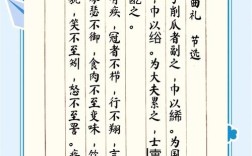 曲礼 节选
子削瓜者副之,巾以絺。为国
巾以绤。为大夫累之,士疐
龁之。
有疾,冠者不栉,行不翔,言
瑟不御,食肉不至变味,饮
貌,笑不至矧,怒不至詈。疾